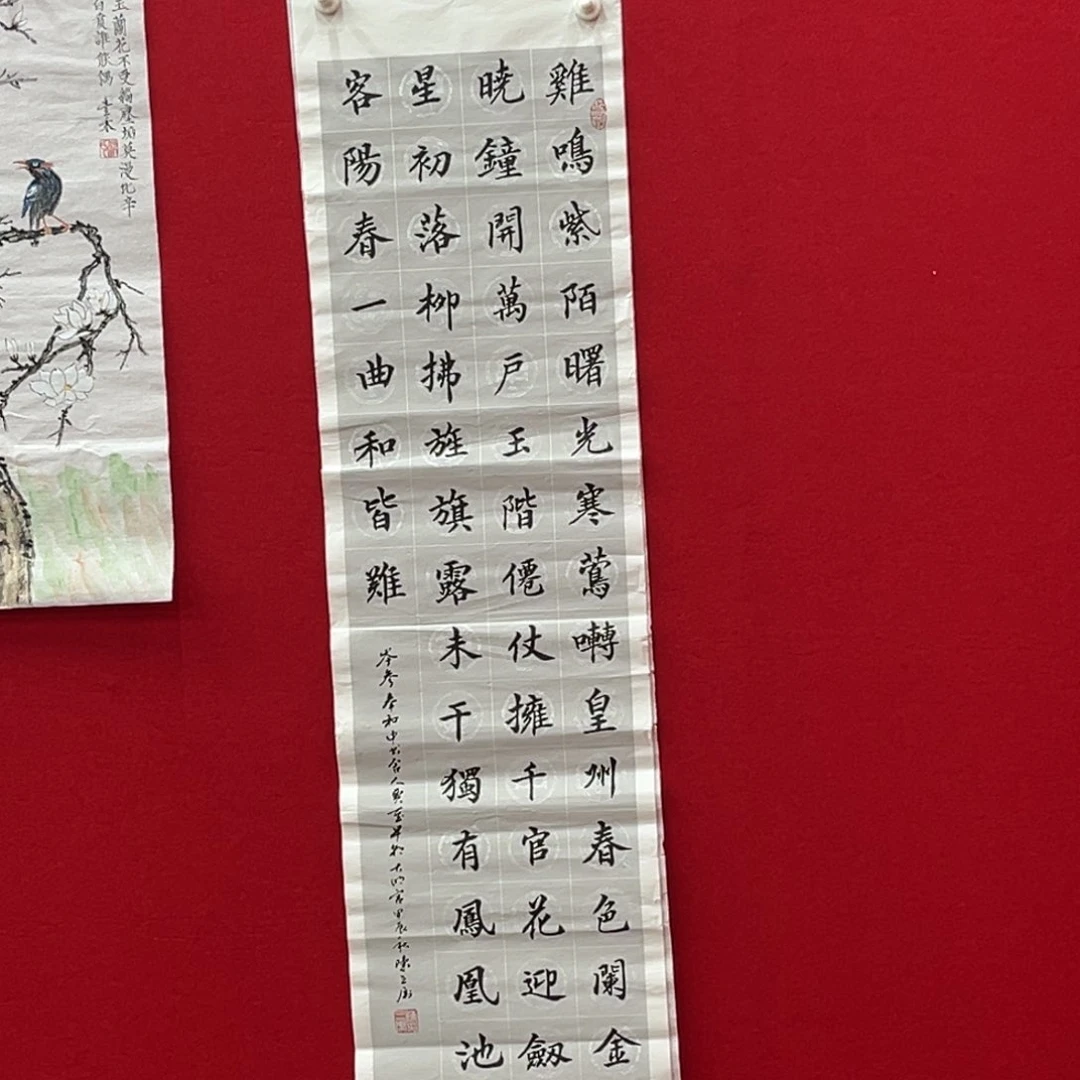 雞鳴紫陌曙光寒鶯囀皇州春色闌金
暁鐘開萬戶玉階僊仗擁千官花迎劒
星初落柳拂旌旗露未干獨有鳳凰池
客陽春一曲和皆難
岑參奉和中書舍人賈至早朝大明宮甲辰秋陳
玉蘭花不受緇塵垢莫漫比辛
白賁誰能偶